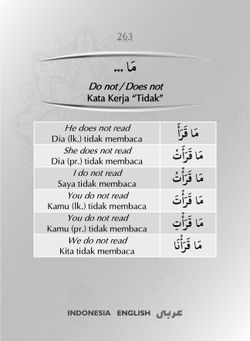 263
مَا ...
Do not / Does not
Kata Kerja “Tidak”
He does not read
Dia (lk.) tidak membaca
مَا قَرَأَ
She does not read
Dia (pr.) tidak membaca
مَا قَرَأَتْ
I do not read
Saya tidak membaca
مَا قَرَأْتُ
You do not read
Kamu (lk.) tidak membaca
مَا قَرَأْتَ
You do not read
Kamu (pr.) tidak membaca
مَا قَرَأْتِ
We do not read
Kita tidak membaca
مَا قَرَأْنَا
INDONESIA ENGLISH عربي